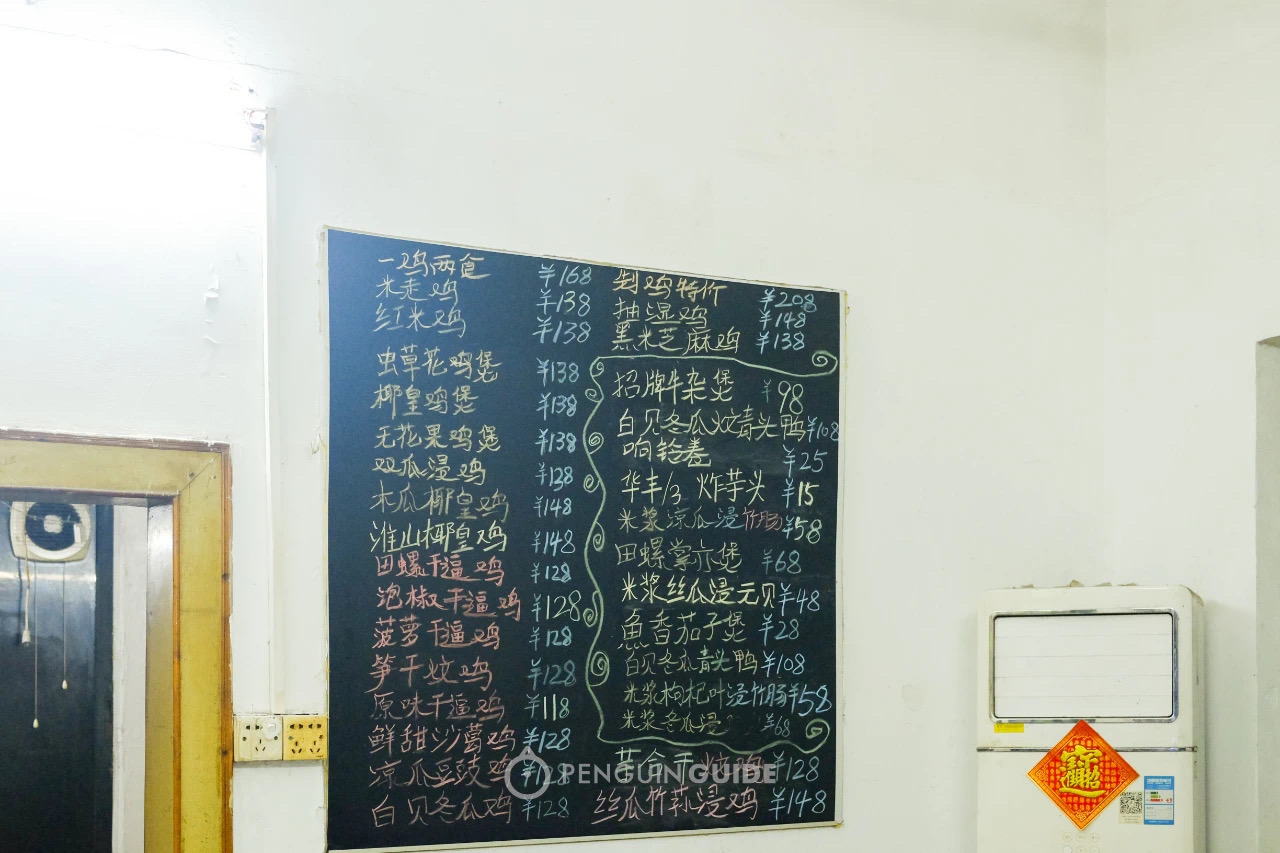 一鸡两食 ¥168
米走鸡 ¥138
红米鸡 ¥138
虫草花鸡煲 ¥138
椰皇鸡煲 ¥138
无花果鸡煲 ¥138
双瓜浸鸡 ¥138
木瓜椰皇鸡 ¥148
淮山椰皇鸡 ¥148
田螺干逼鸡 ¥128
泡椒干逼鸡 ¥128
菠萝干逼鸡 ¥128
笋干炆鸡 ¥128
原味干逼鸡 ¥118
鲜甜沙葛鸡 ¥128
凉瓜豆豉鸡 ¥128
白贝冬瓜鸡 ¥128
制鸡特价 ¥208
抽湿鸡 ¥148
黑米芝麻鸡 ¥138
招牌牛杂煲 ¥98
白贝冬瓜炆青头鸭 ¥108
响铃卷 ¥25
华丰/3 炸芋头 ¥15
米浆凉瓜浸竹肠 ¥58
田螺掌亦煲 ¥68
米浆丝瓜浸元贝 ¥48
魚香茄子煲 ¥28
白贝冬瓜青头鸭 ¥108
米浆枸杞叶浸竹肠 ¥58
米浆冬瓜浸 ¥68
¥128
丝瓜竹荪浸鸡 ¥148
PENGUIN GUIDE